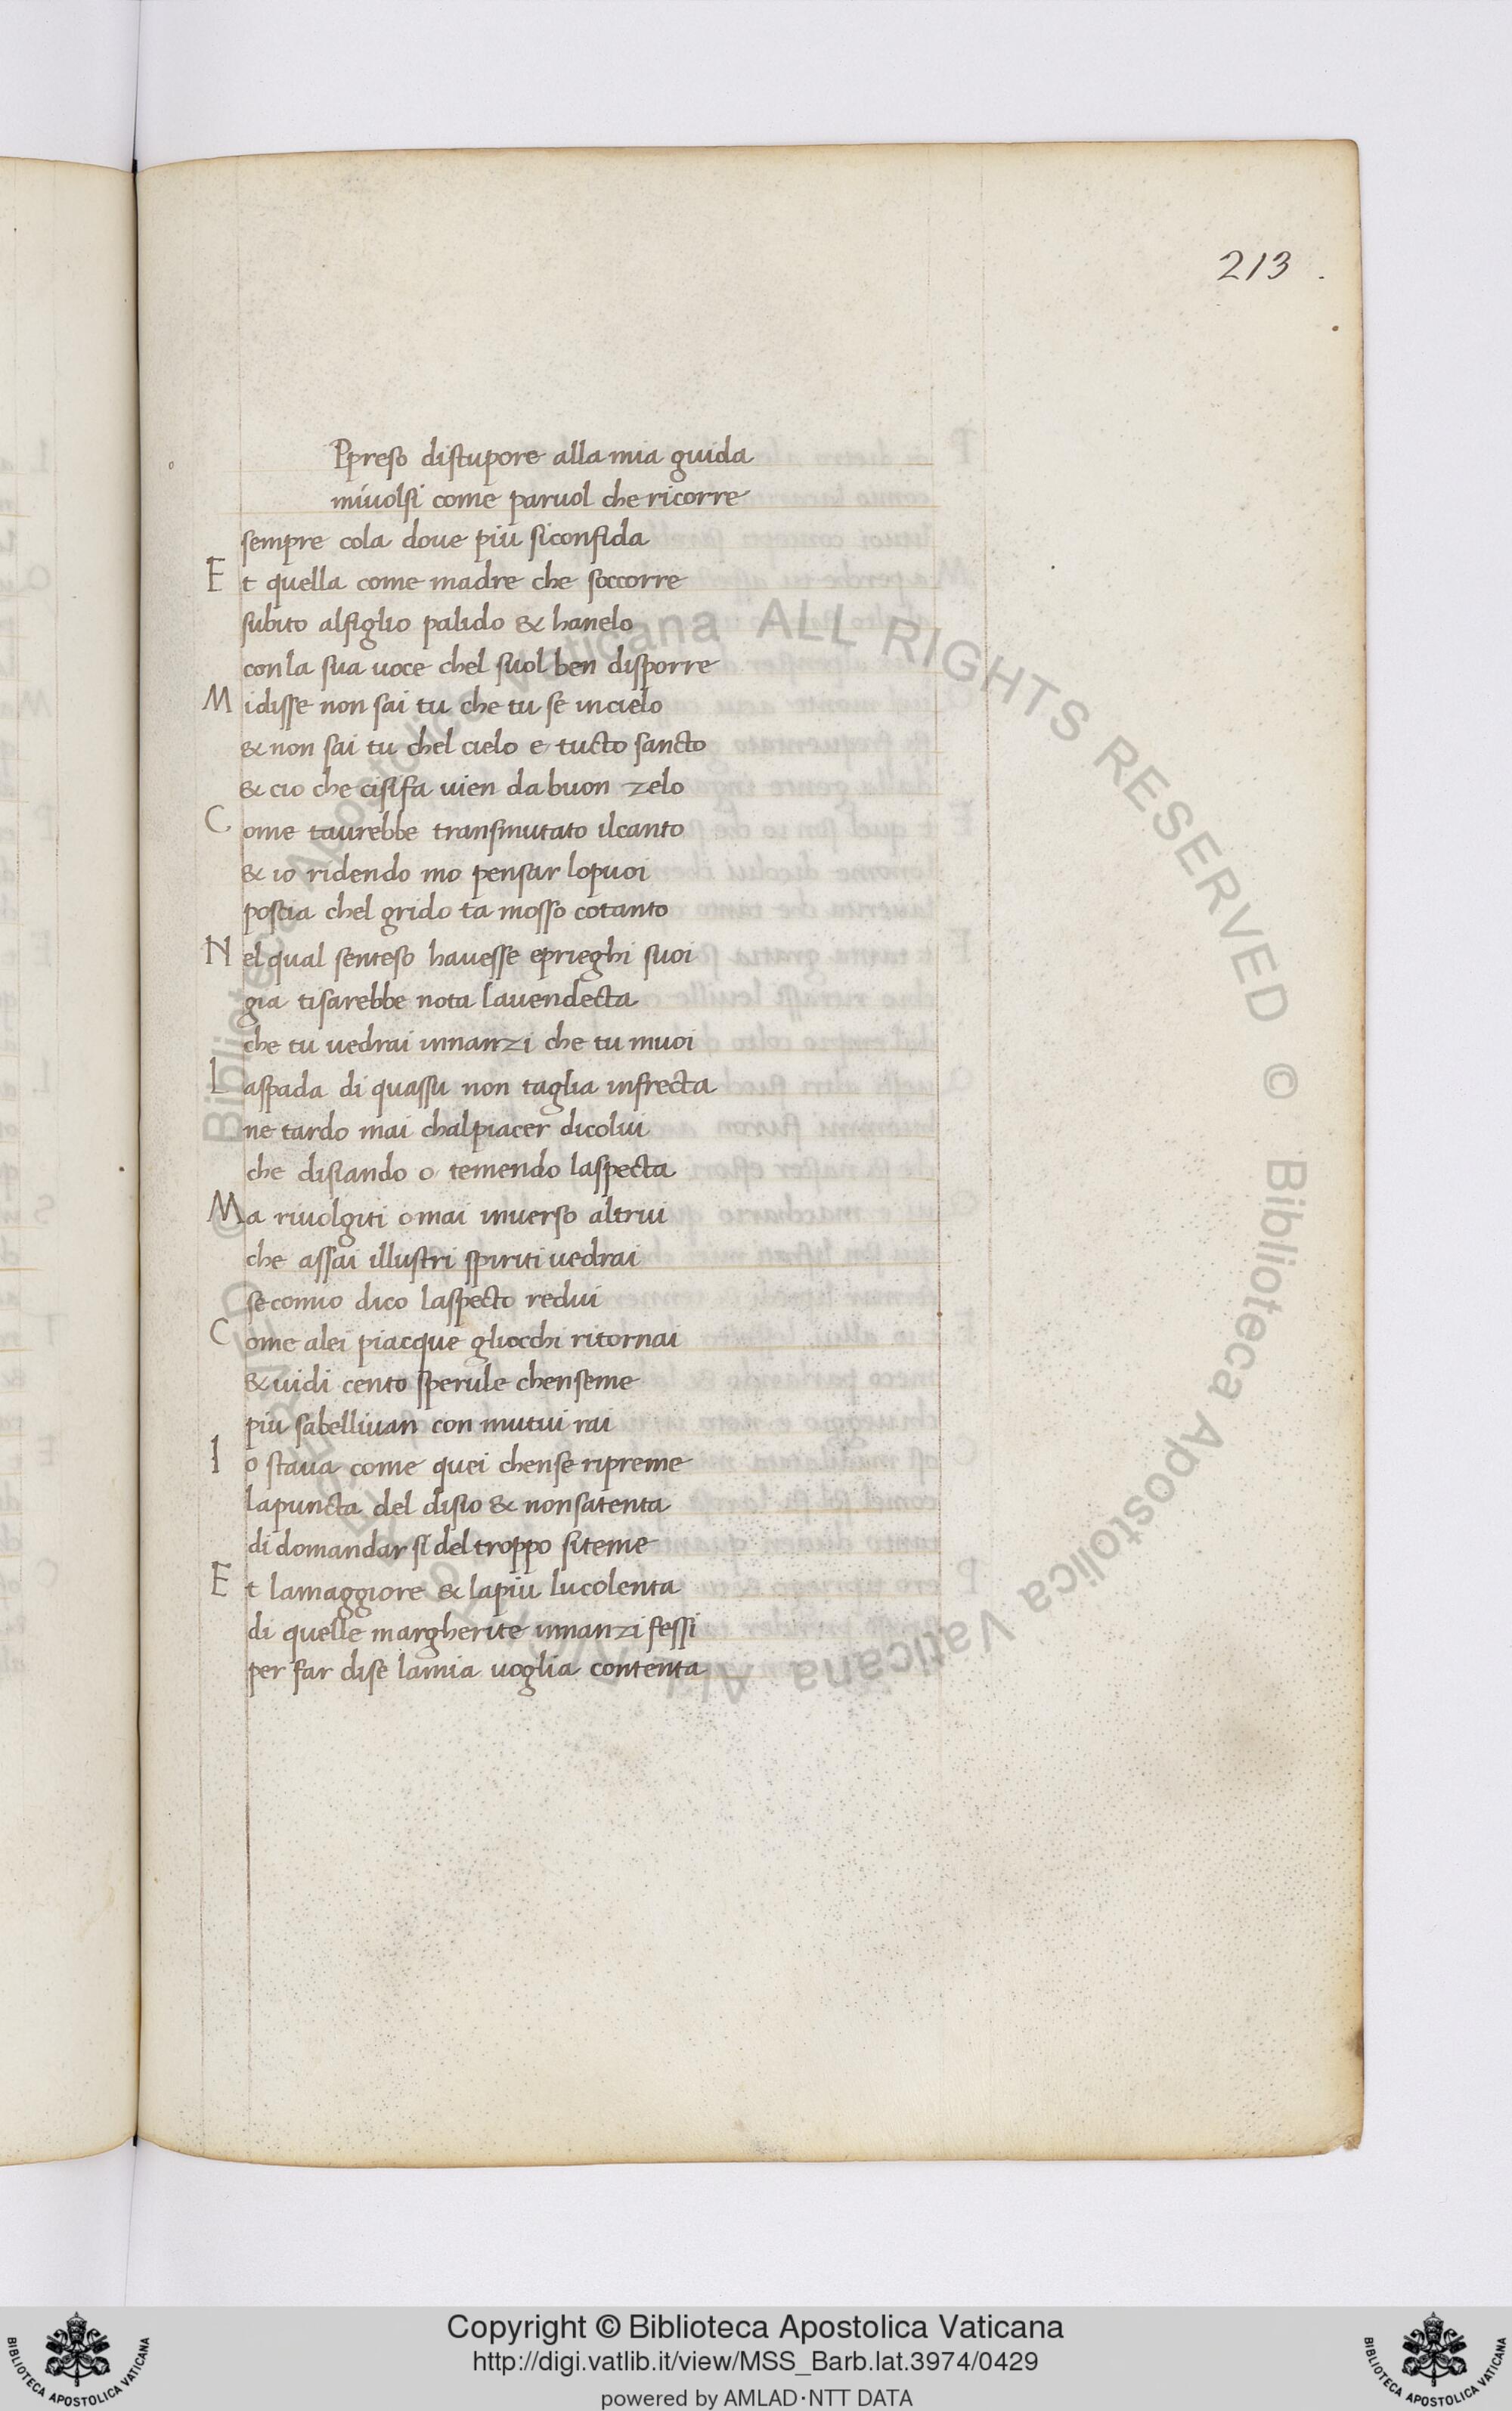 213
Ppreso distupore alla mia guida
miuolsi come paruol che ricorre
sempre cola doue piu siconfida
Et quella come madre che soccorre
subito alfiglio palido & hanelo
conla sua uoce chel suol ben disporre
Midisse non sai tu che tu se incielo
& non sai tu chel cielo e tucto sancto
& cio che cisifa uien da buon zelo
Come taurebbe transmutato ilcanto
& io ridendo mo pensar lopuoi
poscia chel grido ta mosso cotanto
Nel qual senteso hauesse eprieghi suoi
gia tisarebbe nota lauendecta
che tu uedrai innanzi che tu muoi
Laspada di quassu non taglia infrecta
ne tardo mai chalpiacer dicolui
che disiando o temendo laspecta
Ma riuolgiti omai inuerso altrui
che assai illustri spiriti uedrai
se comio dico laspecto redui
Come alei piacque gliocchi ritornai
& uidi cento sperule chenseme
piu sabelliuan con mutui rai
Io staua come quei chense ripreme
lapuncta del disio & nonsatenta
di domandar si del troppo siteme
Et lamaggiore & lapiu luculenta
di quelle margherite innanzi fessi
per far dise lamia uoglia contenta
© Biblioteca Apostolica Vaticana ALL RIGHTS RESERVED © Biblioteca Apostolica Vaticana ALL RIGHTS RESERVED
Copyright © Biblioteca Apostolica Vaticana
http://digi.vatlib.it/view/MSS_Barb.lat.3974/0429
powered by AMLAD·NTT DATA
BIBLIOTECA APOSTOLICA VATICANA
BIBLIOTECA APOSTOLICA VATICANA